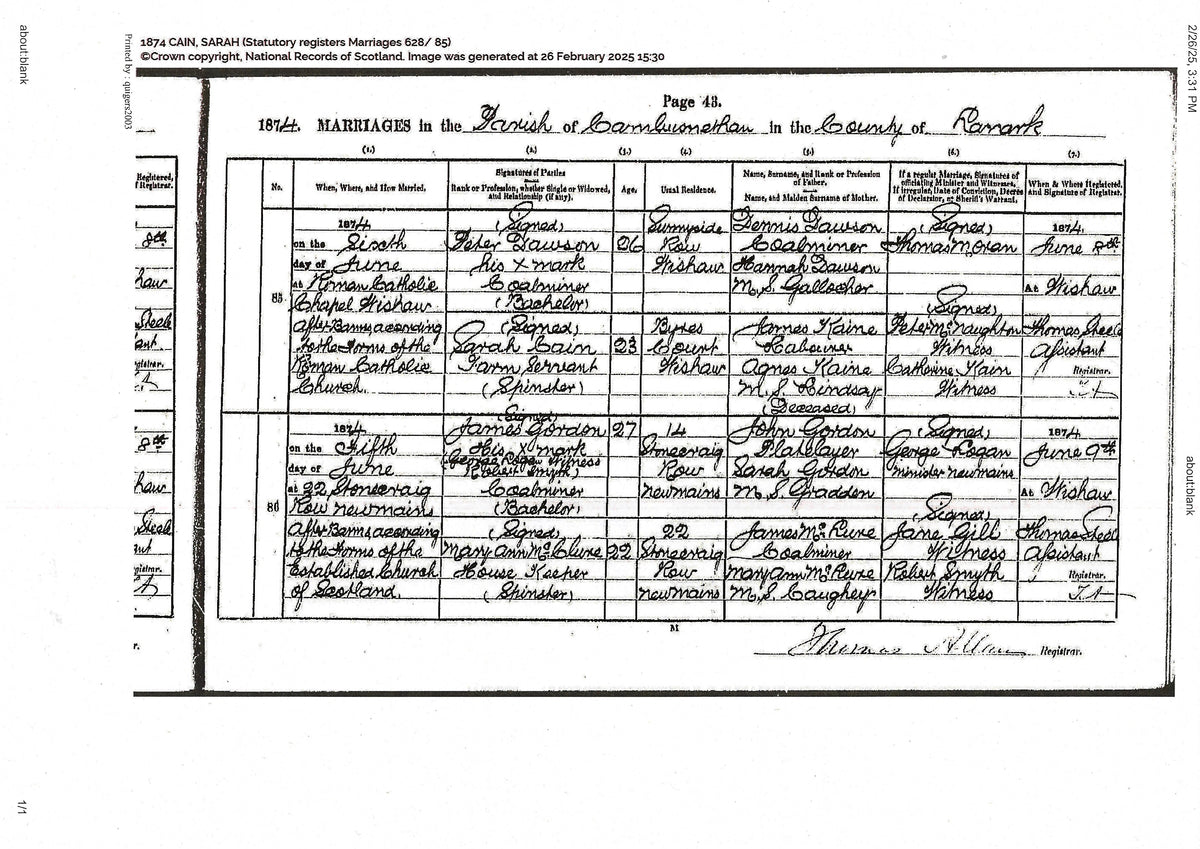 about:blank
2/26/25, 3:31 PM
Printed by : quigers2003
1874 CAIN, SARAH (Statutory registers Marriages 628/ 85)
©Crown copyright, National Records of Scotland. Image was generated at 26 February 2025 15:30
Page 43.
1874. MARRIAGES in the Parish of Cambusnethan in the County of Lanark
(1.) (2.) (3.) (4.) (5.) (6.) (7.)
No.
When, Where, and How Married.
Signatures of Parties
Rank or Profession, whether Single or Widowed, and Relationship (if any).
Age.
Usual Residence.
Name, Surname, and Rank or Profession of Father.
Name, and Maiden Surname of Mother.
If a regular Marriage, Signatures of officiating Minister and Witnesses.
If irregular, Date of Conviction, Decree of Declarator, or Sheriff's Warrant.
When & Where Registered, and Signature of Registrar.
85
1874
on the Sixth
day of June
at Roman Catholic
Chapel Wishaw
After Banns according
to the Forms of the
Roman Catholic
Church
(Signed)
Peter Dawson
his X mark
Coalminer
(Bachelor)
(Signed)
Sarah Cain
Farm Servant
(Spinster)
26
23
Sunnyside
Row
Wishaw
Byres
Court
Wishaw
Dennis Dawson
Coalminer
Hannah Dawson
M.S. Gallocher
James Kaine
Labourer
Agnes Kaine
M.S. Lindsay
(Deceased)
(Signed)
Thomas Moran
(Signed)
Peter McNaughton
Witness
Catherine Kain
Witness
1874
June 8th
At Wishaw
Thomas Steele
Assistant
Registrar.
86
1874
on the Fifth
day of June
at 22 Stonecraig
Row Newmains
After Banns according
to the Forms of the
Established Church
of Scotland.
(Signed)
James Gordon
His X mark
George Logan Witness
Robert Smyth
Coalminer
(Bachelor)
(Signed)
Mary Ann McClure
House Keeper
(Spinster)
27
22
14
Stonecraig
Row
Newmains
22
Stonecraig
Row
Newmains
John Gordon
Platelayer
Sarah Gordon
M.S. Gradden
James McLure
Coalminer
Mary Ann McLure
M.S. Caughey
(Signed)
George Logan
Minister Newmains
(Signed)
Jane Gill
Witness
Robert Smyth
Witness
1874
June 9th
At Wishaw
Thomas Steele
Assistant
Registrar.
M
Thomas Allan Registrar.
1/1
about:blank